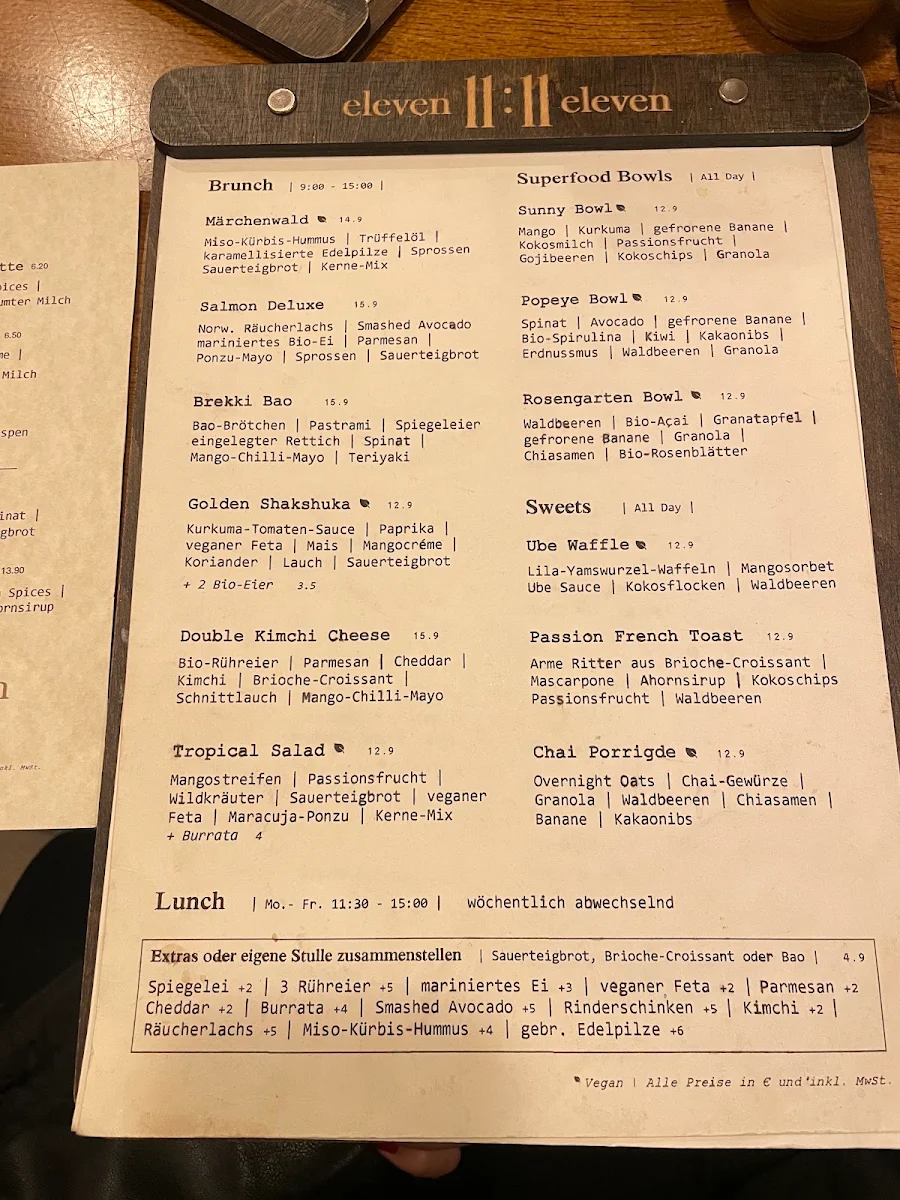 eleven 11:11 eleven
Brunch | 9:00 - 15:00 |
Märchenwald 14.9
Miso-Kürbis-Hummus | Trüffelöl |
karamellisierte Edelpilze | Sprossen
Sauerteigbrot | Kerne-Mix
Salmon Deluxe 15.9
Norw. Räucherlachs | Smashed Avocado
mariniertes Bio-Ei | Parmesan |
Ponzu-Mayo | Sprossen | Sauerteigbrot
Brekki Bao 15.9
Bao-Brötchen | Pastrami | Spiegeleier
eingelegter Rettich | Spinat |
Mango-Chilli-Mayo | Teriyaki
Golden Shakshuka 12.9
Kurkuma-Tomaten-Sauce | Paprika |
veganer Feta | Mais | Mangocréme |
Koriander | Lauch | Sauerteigbrot
+ 2 Bio-Eier 3.5
Double Kimchi Cheese 15.9
Bio-Rühreier | Parmesan | Cheddar |
Kimchi | Brioche-Croissant |
Schnittlauch | Mango-Chilli-Mayo
Tropical Salad 12.9
Mangostreifen | Passionsfrucht |
Wildkräuter | Sauerteigbrot | veganer
Feta | Maracuja-Ponzu | Kerne-Mix
+ Burrata 4
Superfood Bowls | All Day |
Sunny Bowl 12.9
Mango | Kurkuma | gefrorene Banane |
Kokosmilch | Passionsfrucht |
Gojibeeren | Kokoschips | Granola
Popeye Bowl 12.9
Spinat | Avocado | gefrorene Banane |
Bio-Spirulina | Kiwi | Kakaonibs |
Erdnussmus | Waldbeeren | Granola
Rosengarten Bowl 12.9
Waldbeeren | Bio-Açai | Granatapfel |
gefrorene Banane | Granola |
Chiasamen | Bio-Rosenblätter
Sweets | All Day |
Ube Waffle 12.9
Lila-Yamswurzel-Waffeln | Mangosorbet
Ube Sauce | Kokosflocken | Waldbeeren
Passion French Toast 12.9
Arme Ritter aus Brioche-Croissant |
Mascarpone | Ahornsirup | Kokoschips
Passionsfrucht | Waldbeeren
Chai Porrigde 12.9
Overnight Oats | Chai-Gewürze |
Granola | Waldbeeren | Chiasamen |
Banane | Kakaonibs
Lunch | Mo.- Fr. 11:30 - 15:00 | wöchentlich abwechselnd
Extras oder eigene Stulle zusammenstellen | Sauerteigbrot, Brioche-Croissant oder Bao | 4.9
Spiegelei +2 | 3 Rühreier +5 | mariniertes Ei +3 | veganer Feta +2 | Parmesan +2
Cheddar +2 | Burrata +4 | Smashed Avocado +5 | Rinderschinken +5 | Kimchi +2 |
Räucherlachs +5 | Miso-Kürbis-Hummus +4 | gebr. Edelpilze +6
Vegan | Alle Preise in € und inkl. MwSt.
6.20
Milch
6.50
Milch
13.90
Spices |
inkl. MwSt.